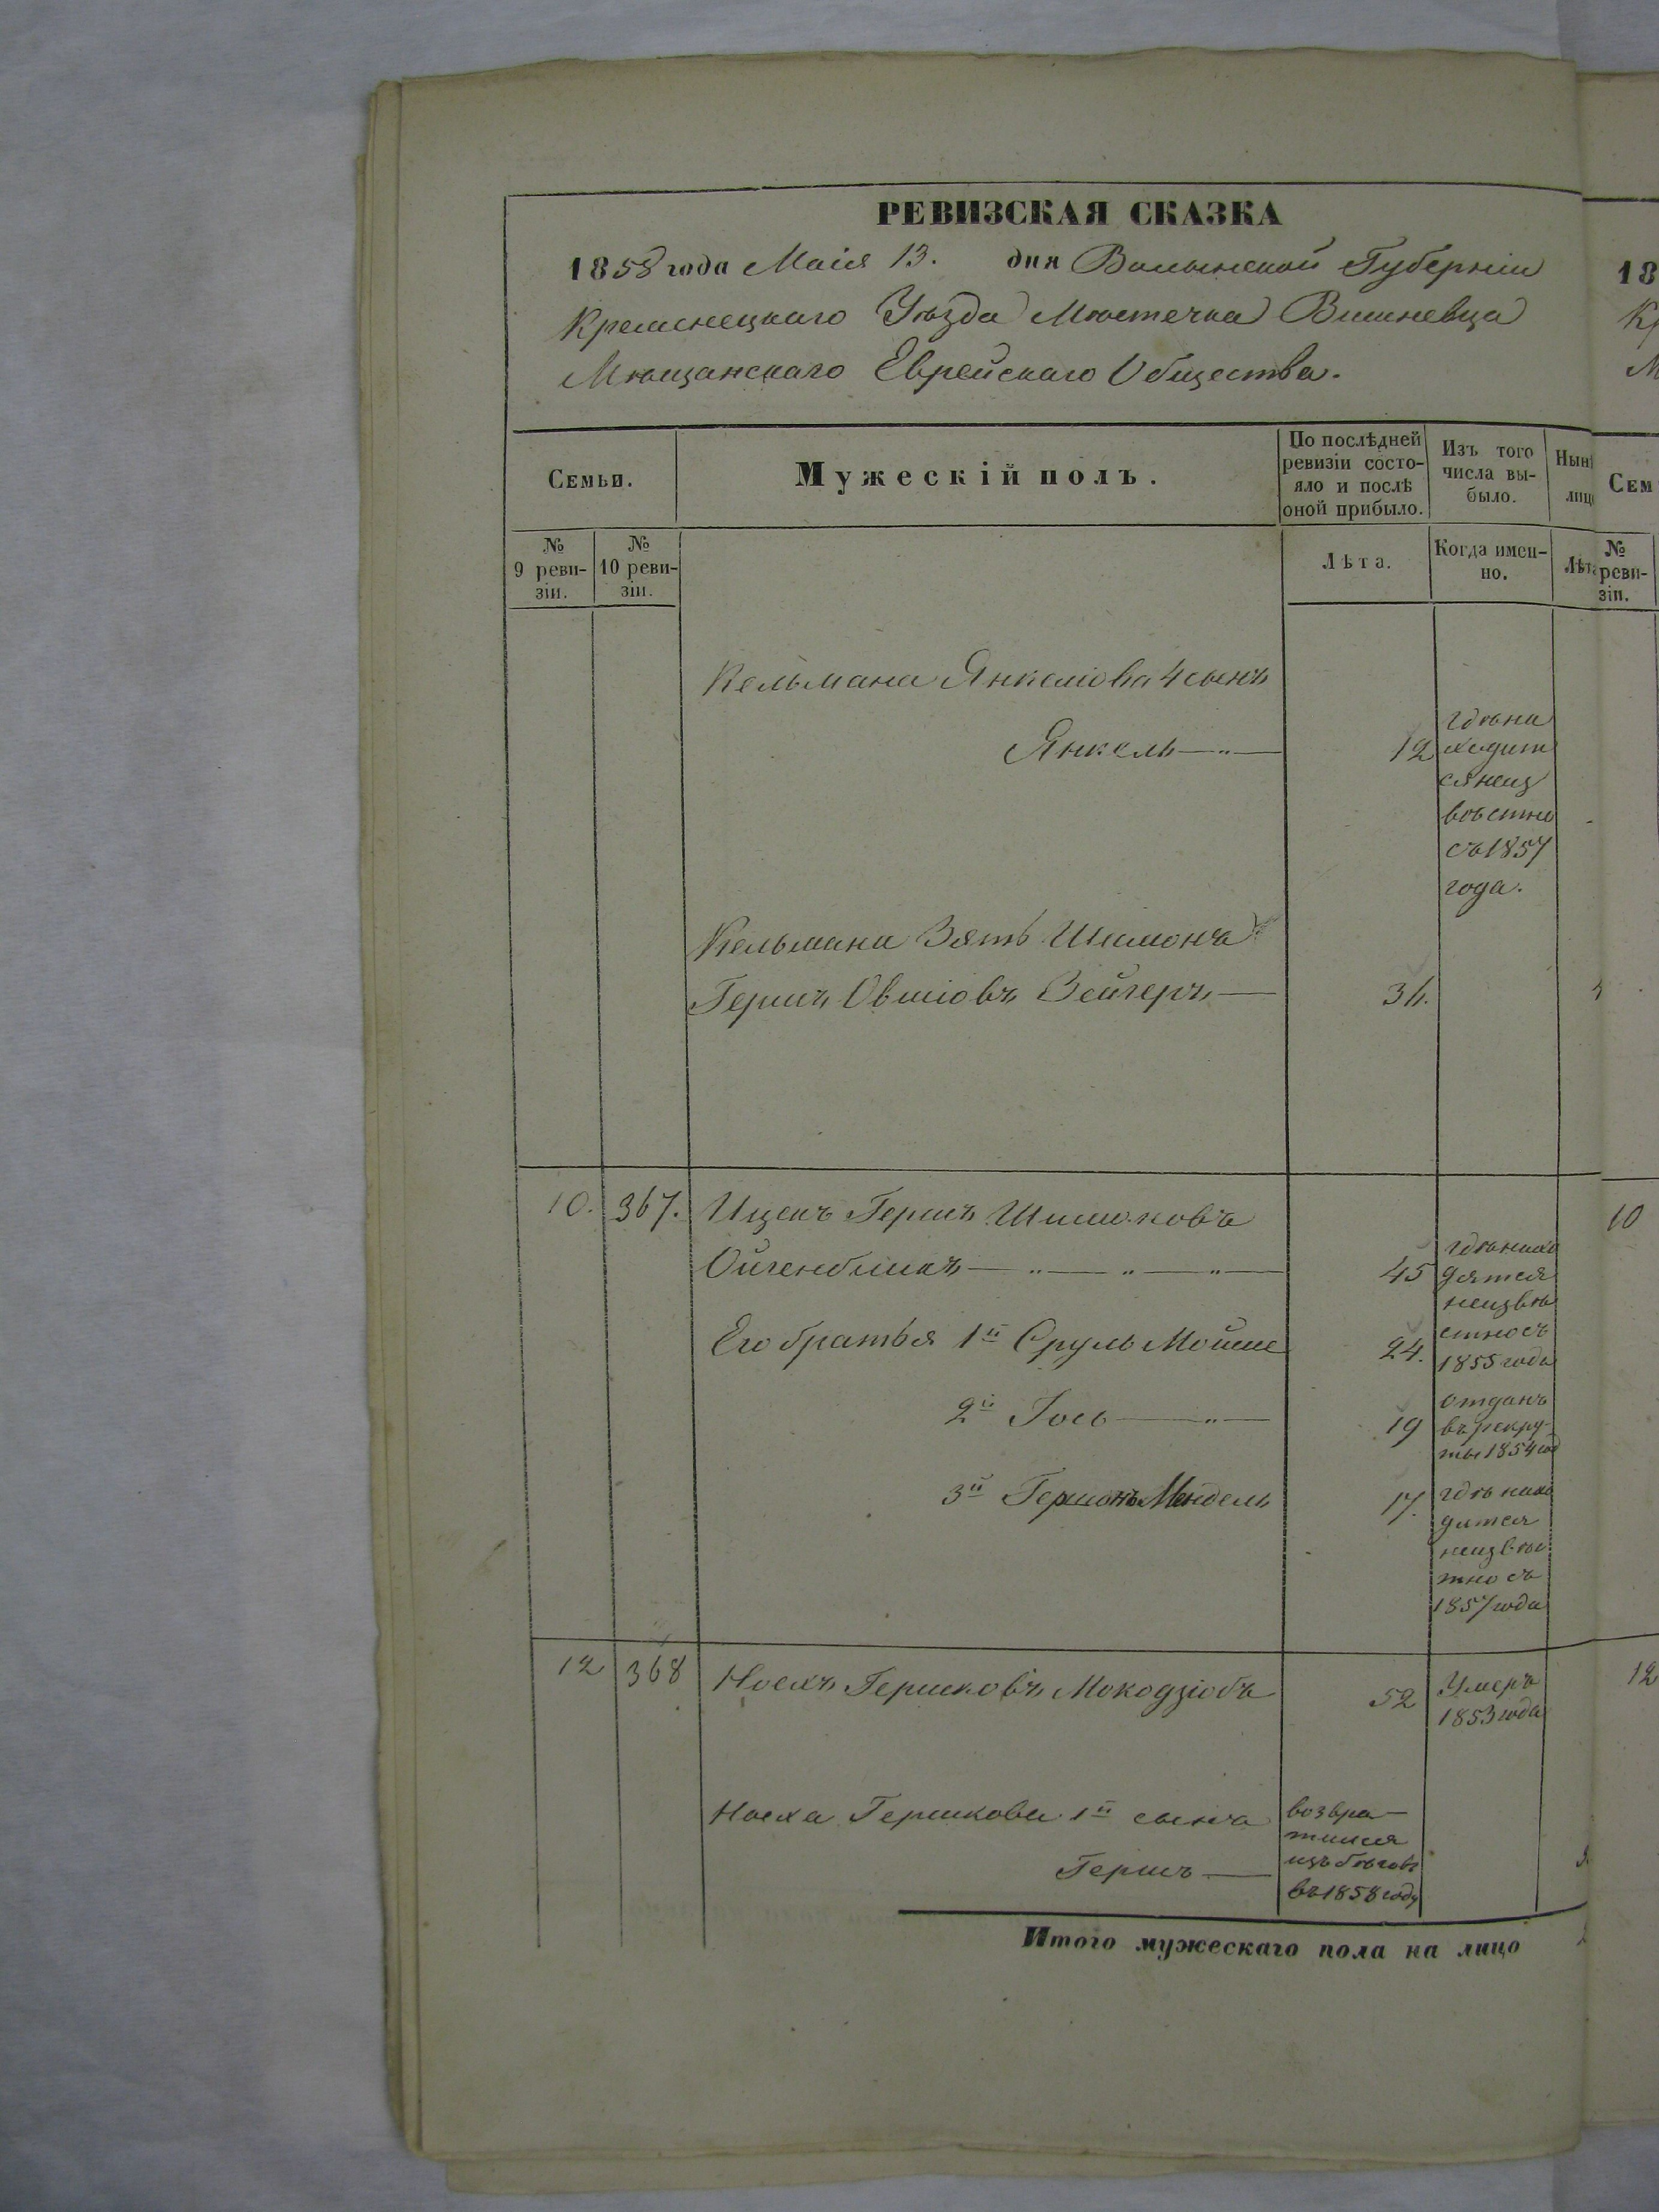 РЕВИЗСКАЯ СКАЗКА
1858 года Маія 13. дня Волынской Губерніи
Кременецкаго Уѣзда Мѣстечка Вишневца
Мѣщанскаго Еврейскаго Общества.
Семьи.
Мужескій полъ.
По послѣдней ревизіи состо-
яло и послѣ
оной прибыло.
Изъ того
числа вы-
было.
№
9 реви-
зіи.
№
10 реви-
зіи.
Лѣта.
Когда имен-
но.
Кельмана Янкелiова 4 сынъ
Янкель
12
гдѣ на
ходит
ся неиз
вѣстно
съ 1857
года.
Кельмана Зять Шимонъ
Гершъ Овшiовъ Вейгеръ
34.
10.
367.
Ицекъ Гершъ Шимоновъ
Ойгенбликъ
45
гдѣ нахо
дятся
неизвѣ
стно съ
1855 года
Его братья 1й Сруль Мойше
24.
2й Іось
19
отданъ
въ рекру-
ты 1854 год
3й Гершонъ Мендель
17.
гдѣ нахо
дится
неизвѣс
тно съ
1857 года
12
368
Ноехъ Гершковъ Мокодзіобъ
52
Умеръ
1853 года
Ноеха Гершкова 1й сынъ
Гершъ
возвра-
тился
изъ бѣговъ
въ 1858 году
Итого мужескаго пола на лицо
18
Сем
№
реви-
зіи.
10
12